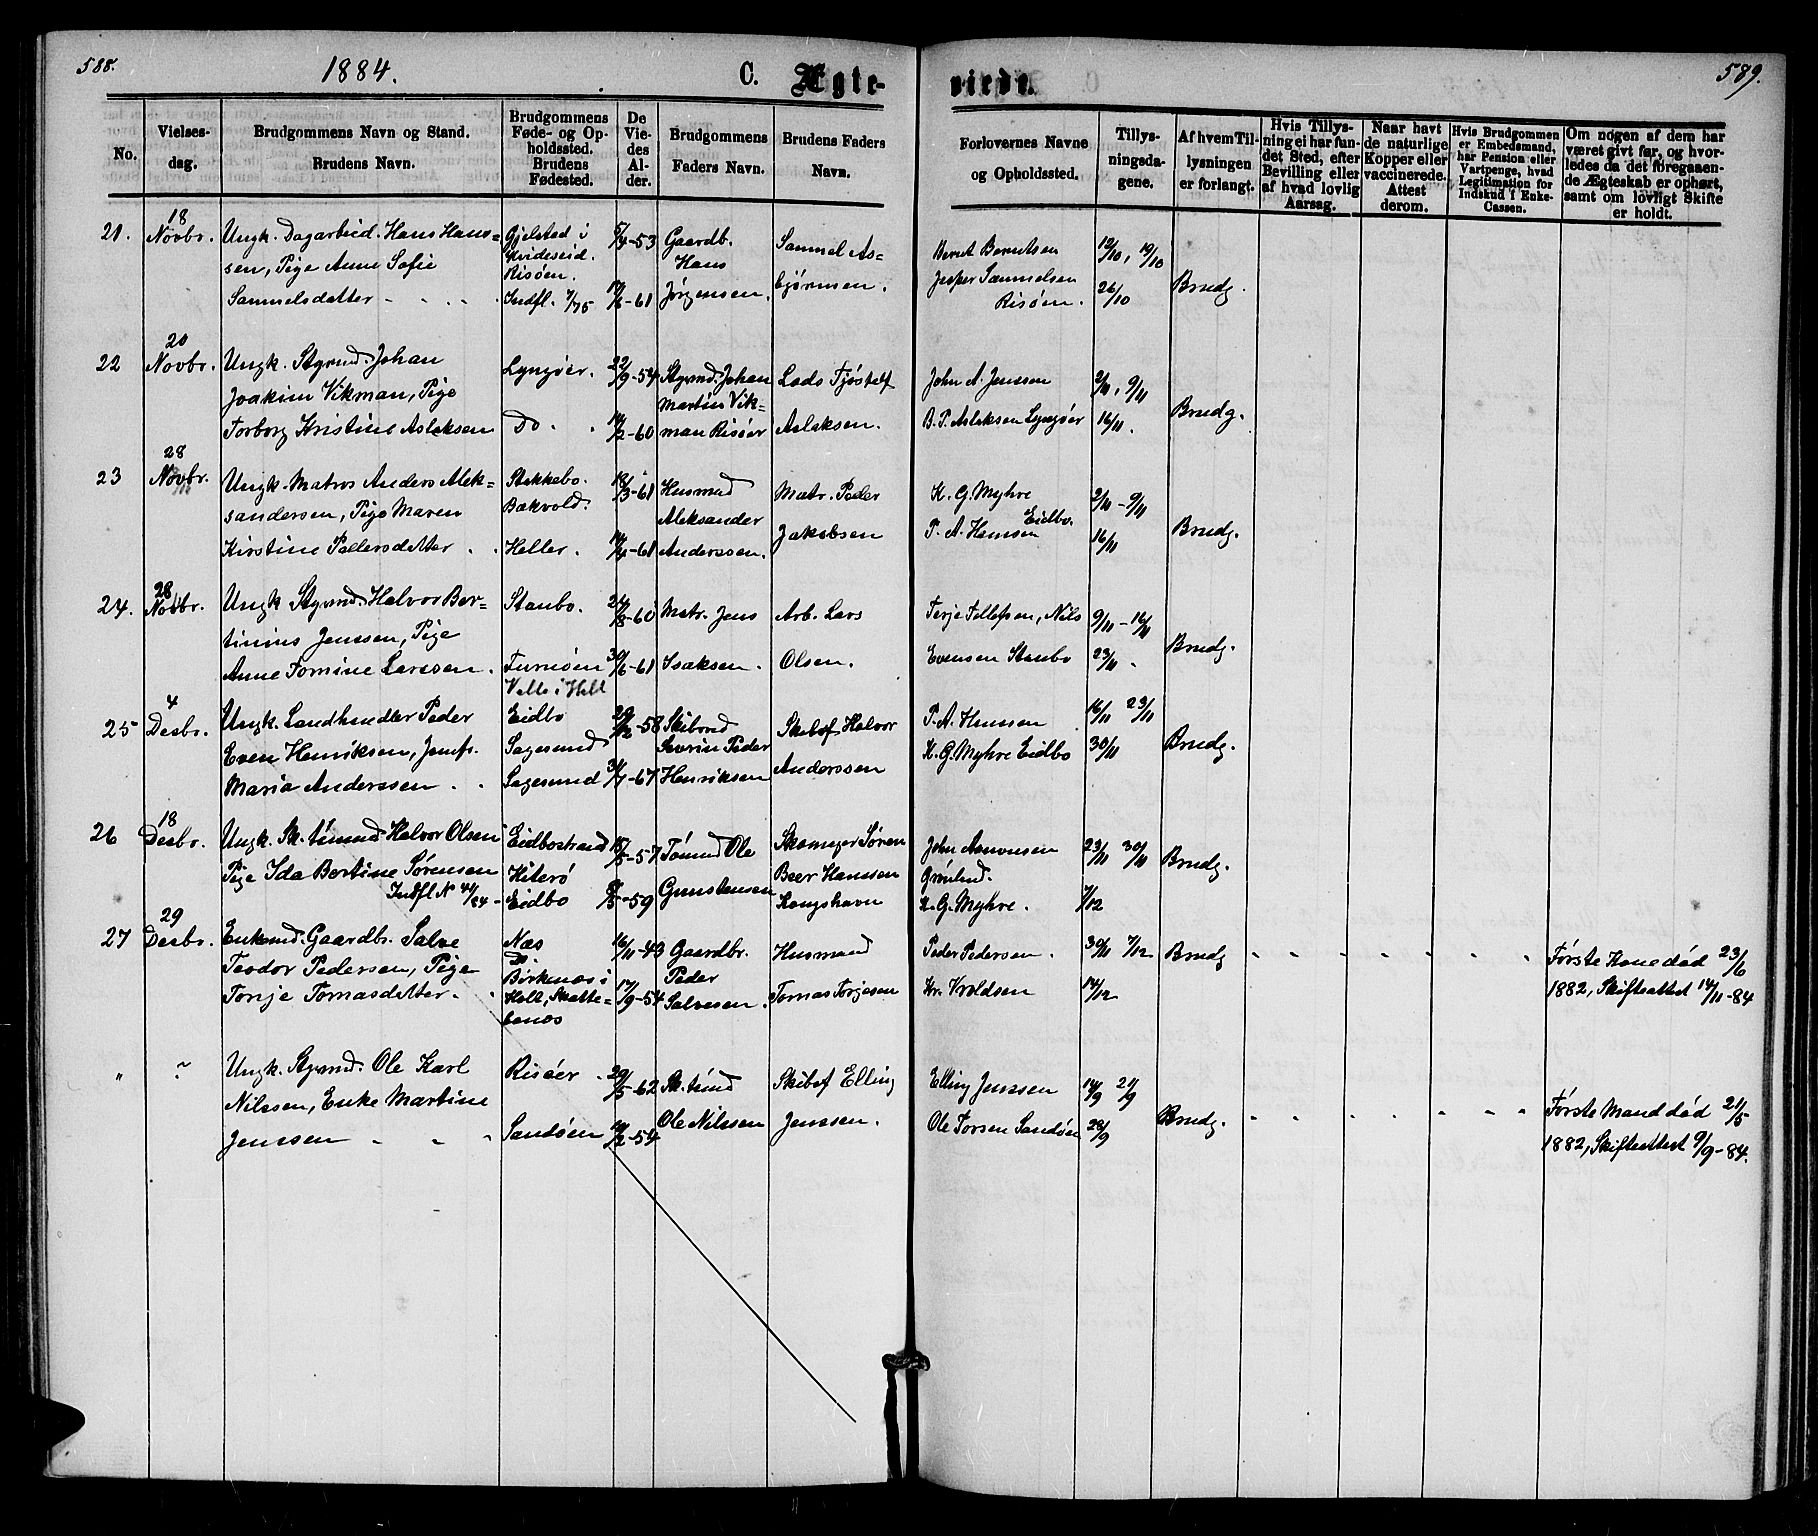 588.
1884.
C. Ægte-
viede.
589.
No.
Vielses-
dag.
Brudgommens Navn og Stand.
Brudens Navn.
Brudgommens
Føde- og Op-
holdssted.
Brudens
Fødested.
De
Vie-
des
Al-
der.
Brudgommens
Faders Navn.
Brudens Faders
Navn.
Forlovernes Navne
og Opholdssted.
Tillys-
ningsda-
gene.
Af hvem Til-
lysningen
er forlangt.
Hvis Tillys-
ning ei har fun-
det Sted, efter
Bevilling eller
af hvad lovlig
Aarsag.
Naar havt
de naturlige
Kopper eller
vaccinerede.
Attest
derom.
Hvis Brudgommen
er Embedsmand,
har Pension eller
Vartpenge, hvad
Legitimation for
Indskud i Enke-
Cassen.
Om nogen af dem har
været givt før, og hvor-
ledes da det foregaaen-
de Ægteskab er ophørt,
samt om lovligt Skifte
er holdt.
21.
18
Novbr.
Ungk. Dagarbeid. Hans Hans-
sen, Pige Anne Sofie
Samuelsdatter - - - -
Gjelstad i
Hvideseid.
Risøen.
Indfl. 7/75
5/4-53
/6-61
Gaardb.
Hans
Jørgensen.
Samuel As-
bjørnsen.
Bernt Berntsen
Jesper Samuelsen
Risøen.
12/10, 19/10
26/10
Brudg.
22
20
Novbr.
Ungk. Styrmd. Johan
Joakim Vikman, Pige
Torborg Kristine Aslaksen
Lyngøer.
Do
22/9-54
14/2-60
Styrmd. Johan
Martin Vik-
man Risøer
Lods Tjøstelf
Aslaksen.
John A. Jenssen
B. T. Aslaksen Lyngøer
2/11, 9/11
16/11.
Brudg.
23
28
Novbr.
Ungk. Matros Anders Alek-
sandersen, Pige Maren
Kirstine Pedersdatter
Stokkebo.
Bakvold.
Heller.
18/3-61
14/4-61
Husmd
Aleksander
Anderssen.
Matr. Peder
Jakobsen
K. G. Myhre
P. A. Hanssen Eidbo.
2/11-9/11
16/11
Brudg.
24.
28
Novbr.
Ungk Styrmd. Halvor Ber-
tinius Jenssen, Pige
Anne Tomine Larssen.
Staubo.
Furuøen
Velle i Holt
24/8-60
30/6-61
Matr. Jens
Isaksen.
Arb. Lars
Olsen.
Terje Tellefsen, Nils
Evensen Staubo
9/11-16/11
23/11.
Brudg.
25
4
Desbr.
Ungk. Landhandler Peder
Even Henriksen, Jomfr.
Maria Anderssen
Eidbo
Sagesund
Sagesund
-58
31/7-67
Skibsrd
Severin Peder
Henriksen
Skibsf Halvor
Anderssen
P. A. Hanssen
K. G. Myhre Eidbo
16/11 23/11
30/11
Brudg.
26
18
Desbr.
Ungk. Sk. tømmd Halvor Olsen
Pige Ida Bertine Sørensen
Indfl N 44/84
Eidbostrand
Hiterø
Eidbo
15/5-57
/5-59
Tømmd Ole
Gunstensen
Skomager Søren
Beer Hanssen
Kongshavn
John Aanonsen
Grønlnd.
K. G. Myhre.
23/11 30/11
7/12
Brudg.
27
29
Desbr.
Enkemd. Gaardbr. Salve
Teodor Pedersen, Pige
Tonje Tomasdatter.
Næs
Do.
Birkenæs i
Holt, Skatte-
benæs
16/11-43
17/9-54
Gaardbr.
Peder
Salvesen.
Husmand
Tomas Torjesen
Peder Pedersen.
Kr. Kroldsen
30/11 7/12
14/12
Brudg
Første Kone død 23/6
1882, Skifteattest 14/11-84
"
~
Ungk. Styrmd. Ole Karl
Nilssen, Enke Martine
Jenssen - - -
Risøer
Sandøen
29/5-62
/2-54
Sk. tømd
Ole Nilssen
Skibsf Elling
Jenssen.
Elling Jenssen
Ole Torsen Sandøen
14/9 21/9
28/9
Brudg.
Første Mand død 21/5
1882, Skifteattest 9/9-84.